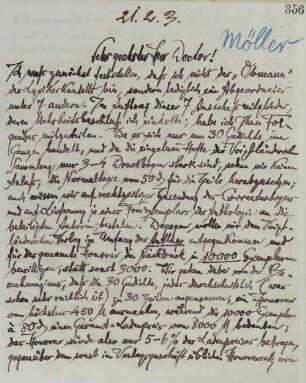 21. 2. 3.
356
Möller
Sehr geehrter Herr Doctor!
Ich muß zunächst feststellen, daß ich nicht der „Obmann"
der Lyrikerkartells bin, sondern lediglich ein Abgeordneter
unter 7 andern. Im Auftrag dieser 7 Ausschußmitglieder,
deren Mehrheitsbeschluß ich einholte, habe ich Ihnen Fol-
gendes mitzuteilen. Da es sich nur um 30 Gedichte im
Ganzen handelt, und da die einzelnen Hefte der Voigtländerschen
Sammlung nur 3–4 Druckbogen stark sind, sehen wir keinen
Anlaß, die Normaltaxe von 50 d. für die Zeile herabzusetzen,
auch müssen wir auf rechtzeitiger Zusendung der Correcturbogen
und auf Lieferung je eines Freiexemplars der Anthologie an die
beteiligten Autoren bestehen. Dagegen wollen wir dem Voigt-
länderschen Verlag im Umfang der Auflage entgegenkommen und
für das genannte Honorar den Nachdruck in 10000 Exemplaren
bewilligen, statt sonst 3000. Wir gehen dabei von der Be-
rechnung aus, daß die 30 Gedichte, jedes durchschnittlich (was
schon sehr reichlich ist) zu 30 Zeilen angenommen, ein Honorar
von höchstens 450 M ausmachen, während die 10000 Exemplare
à 80 d einen Gesamt-Ladenpreis von 8000 M bedeuten;
das Honorar würde also nur 5–6% des Ladenpreises betragen,
gegenüber dem sonst im Verlagsgeschäft üblichen Honorarsatz von